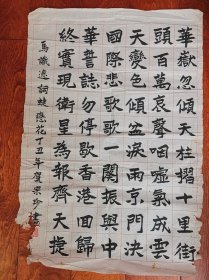 華嶽忽傾天柱摺十里街
頭百萬哀聲咽噓氣成雲
天變色傾盆淚雨京門決
國際悲歌歌一闋振興中
華誓誌勿停歇香港回歸
終實現衛星為報齊天捷
馬識途詞蝶戀花丁丑年賀珍書